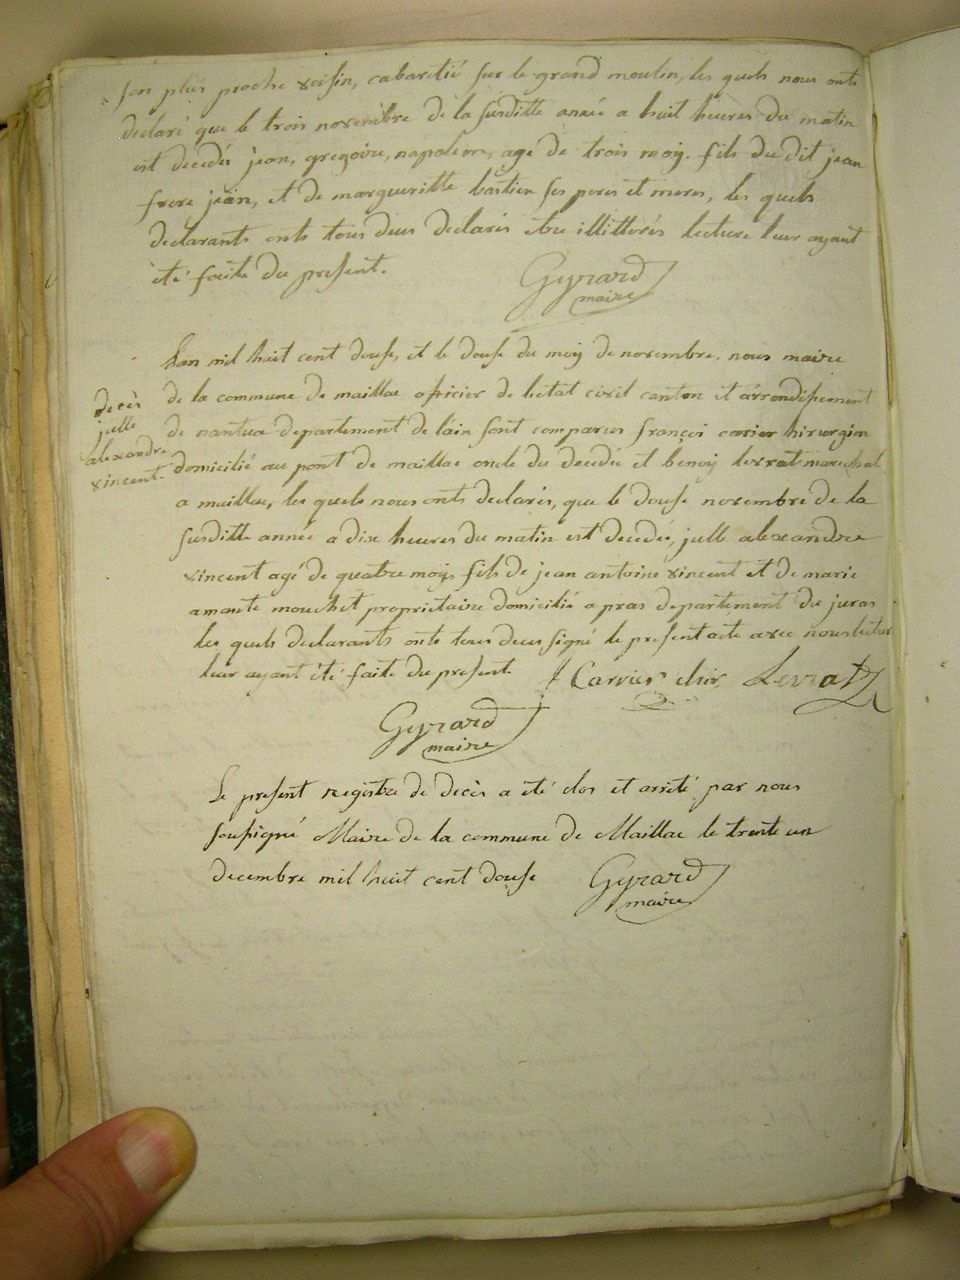 son plus proche voisin, cabaretié sur le grand moulin, les quels nous onts
declaré que le trois novembre de la susditte année a huit heures du matin
est decedés jean, gregoire, napoleon, agé de trois moy. fils du dit jean
frere jean, et de margueritte bastien ses peres et meres, les quels
declarants onts tous deus declarés etre illitterés lecture leur ayant
été faite du present.
Gyrard
maire
Lan mil huit cent douse, et le douse du moy de novembre, nous maire
de la commune de maillac officier de l'etat civil canton et arrondisement
decès
julle
alexandre
vincent.
de nantua departement de lain sont comparus françoi carier hirurgien
domicilié au pont de maillac oncle du decedé et benoy levrat marechal
a maillac, les quels nous onts declarés, que le douse novembre de la
susditte année a dix heures du matin est decedé, julle alexandre
vincent agé de quatre moys fils de jean antoine vincent et de marie
amante mouchet proprietaire domicilié a pras departement du juras
les quels declarants onts tous deus signé le present acte avec nous lectur
leur ayant été faite du present. f Carrier chir Levrat
Gyrard
maire
Le present registre de decès a été clos et arrêté par nous
soussigné Maire de la commune de Maillac le trente un
decembre mil huit cent douse Gyrard
maire